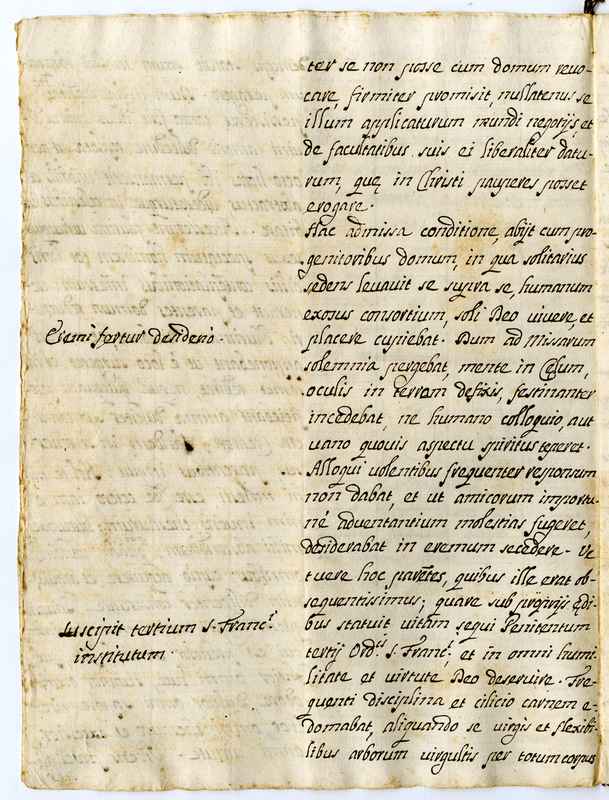 ter se non posse cum domum revo-
care, firmiter promisit, nullatenus se
illum applicaturum mundi negotijs et
de facultatibus suis ei liberaliter datu-
rum, quę in Christi pauperes posset
erogare.
Hac admissa conditione, abijt cum pro-
genitoribus domum, in qua solitarius
sedens levavit se supra se, humanum
exosus consortium, soli Deo vivere, et
placere cupiebat. Dum ad Missarum
solemnia pergebat, mente in Cęlum,
oculis in terram defixis, festinanter
incedebat, ne humano colloquio, aut
vano quovis aspectu spiritus teperet.
Alloqui volentibus frequenter responsum
non dabat, et ut amicorum importu-
né adventantium molestias fugeret,
desiderabat in eremum secedere. Ve
tuere hoc parẽtes, quibus ille erat ob-
sequentissimus; quare sub proprijs ędi-
bus statuit vitam sequi Penitentum
tertij Ord.s S. Franc.i, et in omni humi
litate et virtute Deo deservire. Fre-
quenti disciplina et cilicio carnem e-
domabat, aliquando se virgis et flexibi-
libus arborum virgultis per totum corpus
Eremi fertur desiderio.
Suscipit tertium S. Franc.i
institutum.